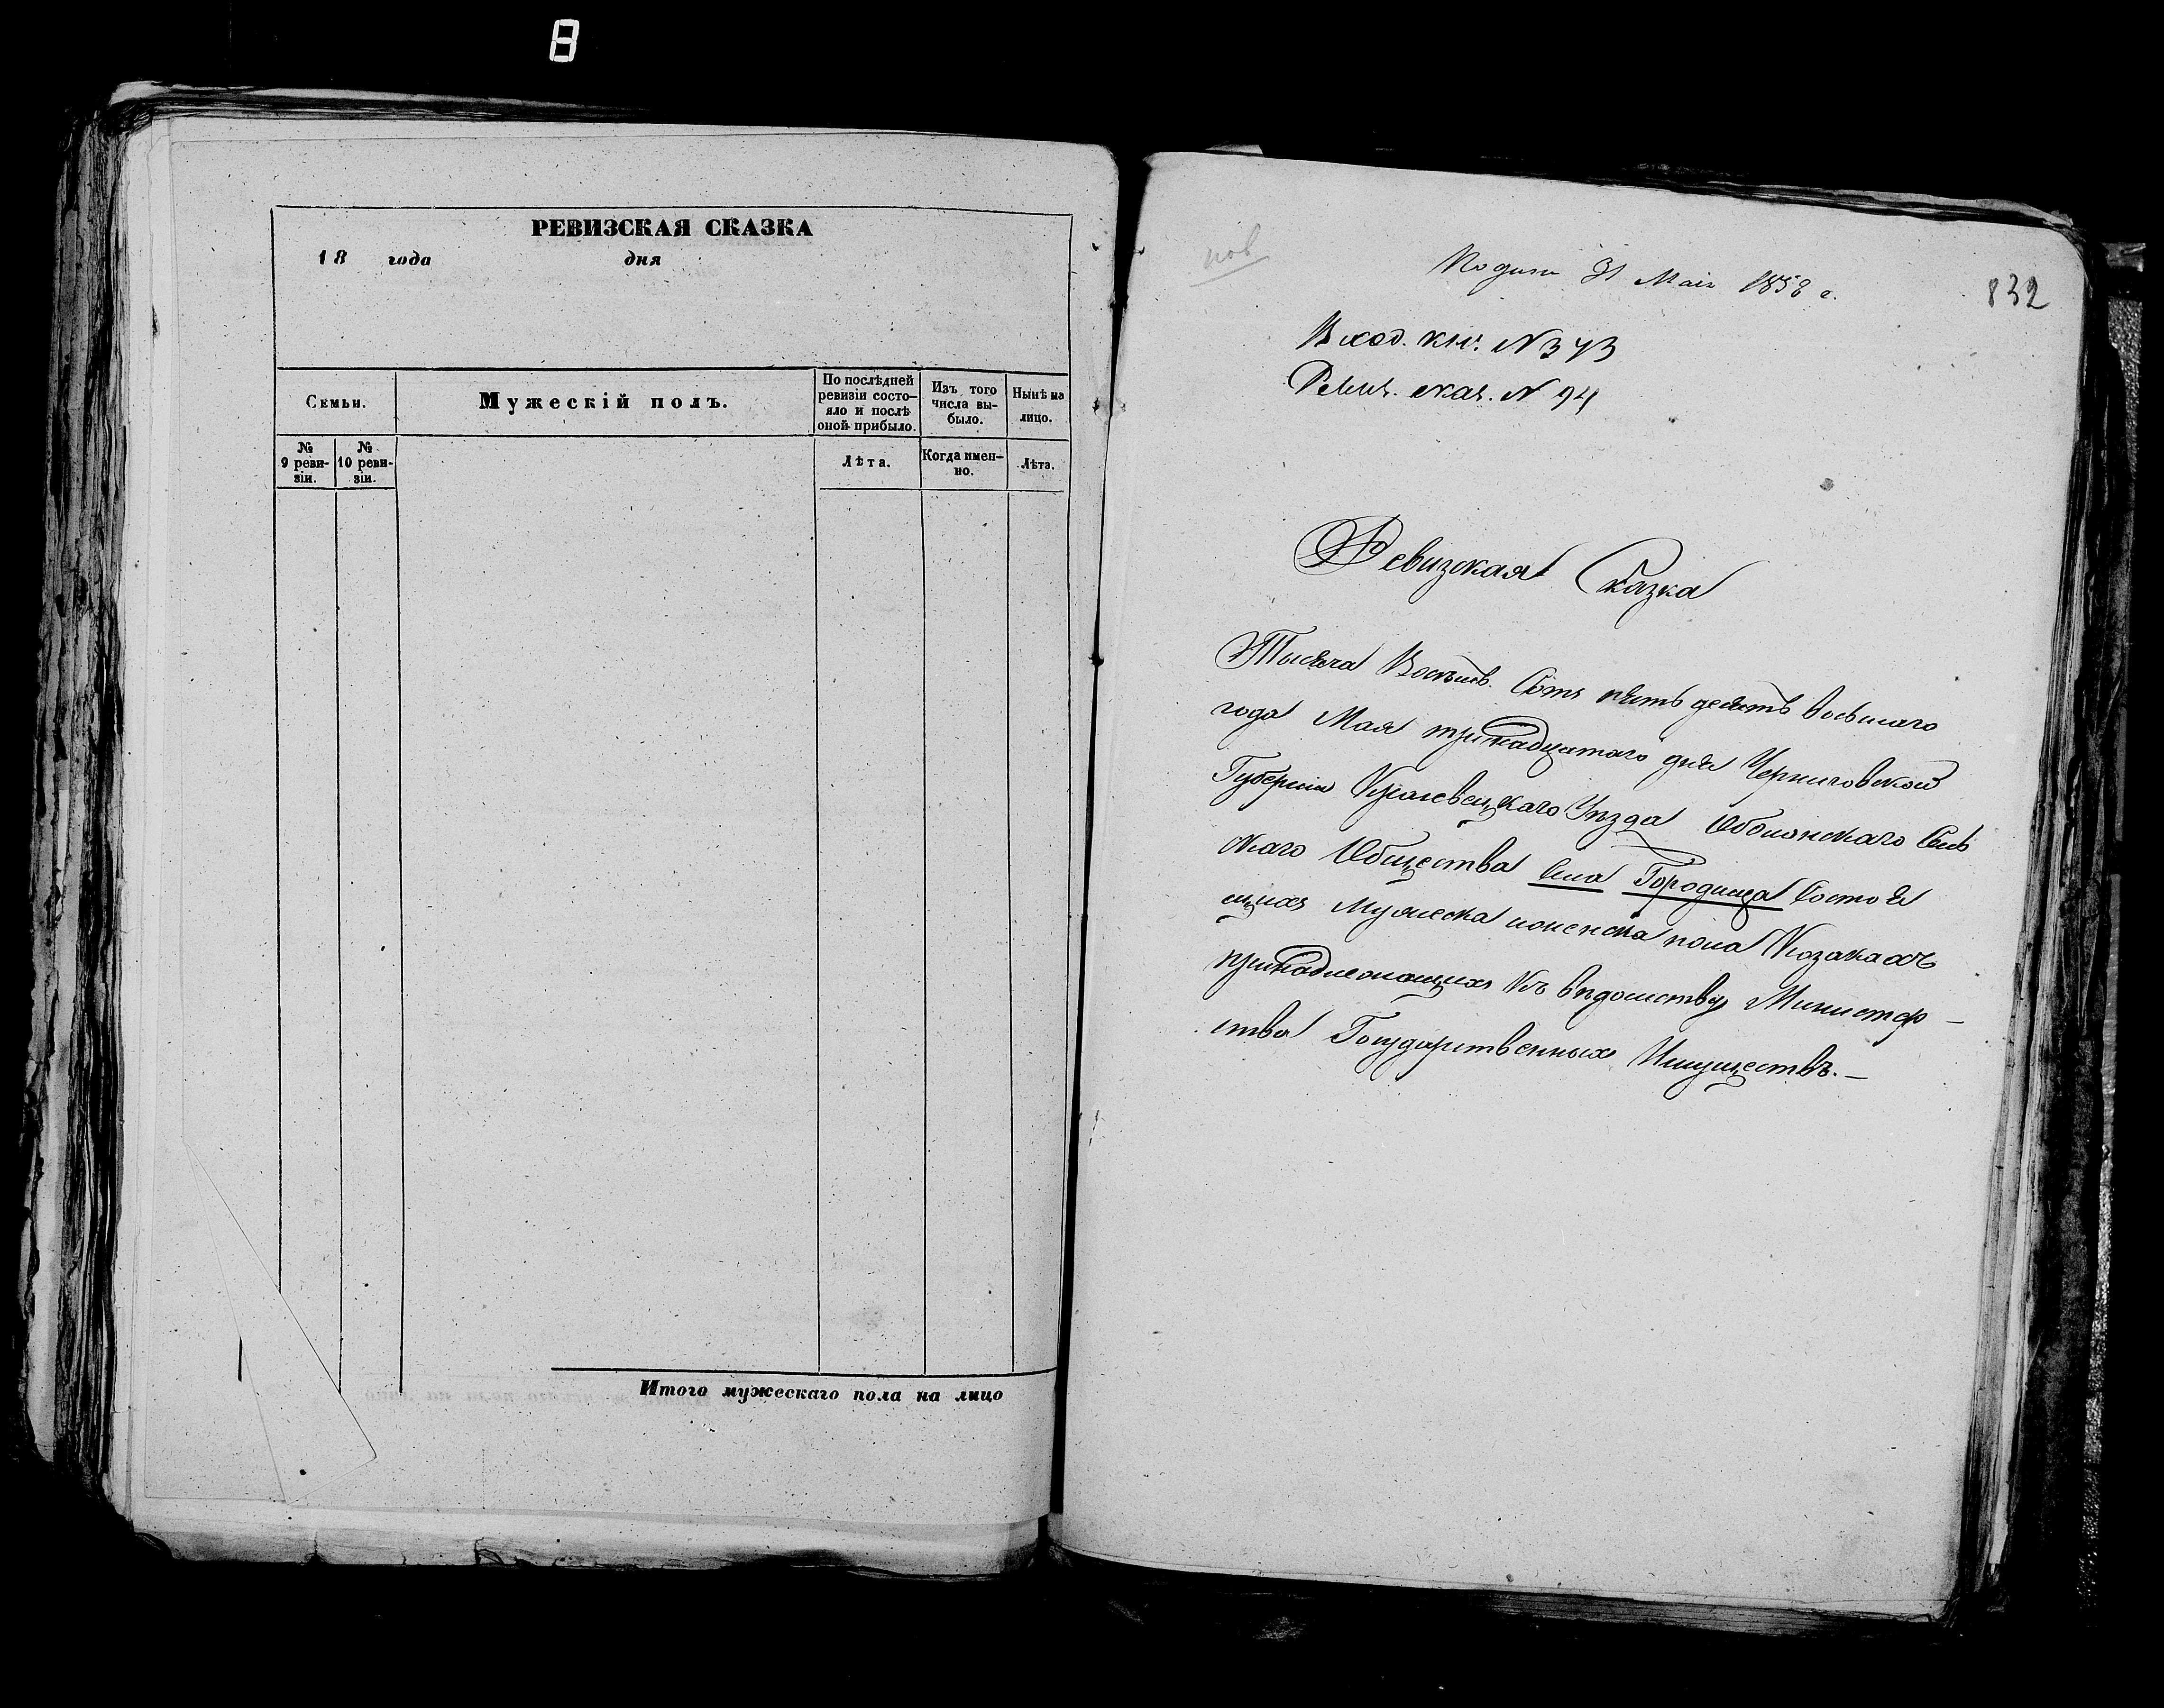 8
РЕВИЗСКАЯ СКАЗКА
18 года дня
Семьи.
Мужескій полъ.
По послѣдней
ревизіи состо-
яло и послѣ
оной прибыло.
Изъ того
числа вы-
было.
Нынѣ на
лицо.
№
9 реви-
зіи.
№
10 реви-
зіи.
Лѣта.
Когда имен-
но.
Лѣта.
Итого мужескаго пола на лицо
832
31 Маія 1858 г.
Вход. кн. N 373
Ревиз. сказ. N 94
Ревизская Сказка
Тысяча Восемь Сотъ пятьдесятъ восьмаго
года Мая тринадцатаго дня Черниговской
Губерніи Кролевецкаго Уѣзда Оболонскаго Сель
скаго Общества Села Городища Состоя
щихъ мужеска и женска пола Козакахъ
принадлежащихъ Къ вѣдомству Министер-
ства Государственныхъ Имуществъ.-